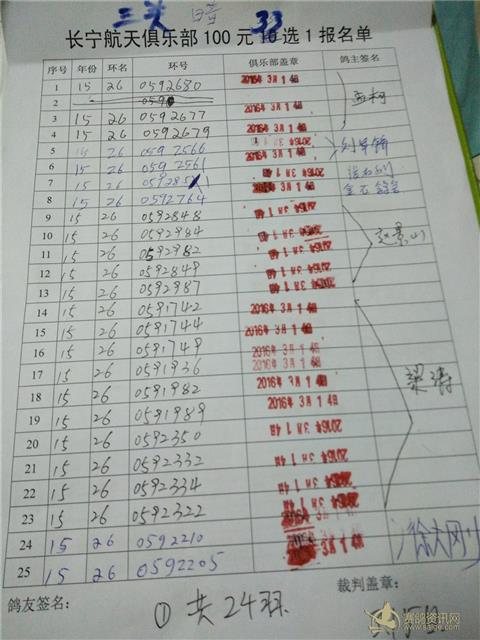 三关 暗 33
长宁航天俱乐部100元10选1报名单
序号 年份 环名 环号 俱乐部盖章 鸽主签名
1 15 26 0592680 2016年3月14日
2
3 15 26 0592677 2016年3月14日 孟柯
4 15 26 0592679 2016年3月14日
5 15 26 0592566 2016年3月14日
6 15 26 0592561 2016年3月14日
7 15 26 2016年3月14日
8 15 26 0592764 2016年3月14日
9 15 26 0592848 2016年3月14日
10 15 26 0592984 2016年3月14日 赵景山
11 15 26 0592982 2016年3月14日
12 15 26 0592849 2016年3月14日
13 15 26 0592987 2016年3月14日
14 15 26 0591742 2016年3月14日
15 15 26 0591744 2016年3月14日
16 15 26 0591749 2016年3月14日
17 15 26 0591936 2016年3月14日 梁涛
18 15 26 0591982 2016年3月14日
19 15 26 0591989 2016年3月14日
20 15 26 0592350 2016年3月14日
21 15 26 0592332 2016年3月14日
22 15 26 0592334 2016年3月14日
23 15 26 0592322 2016年3月14日
24 15 26 0592210 2016年3月14日 徐大刚
25 15 26 0592205
鸽友签名： 裁判盖章：
① 共24羽
赛鸽资讯网
www.saige.com